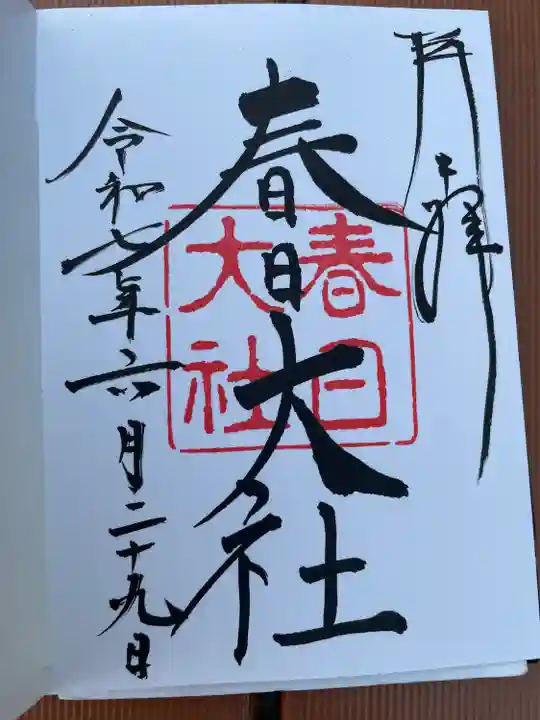 奉拝
春日大社
春日
大社
令和七年六月二十九日